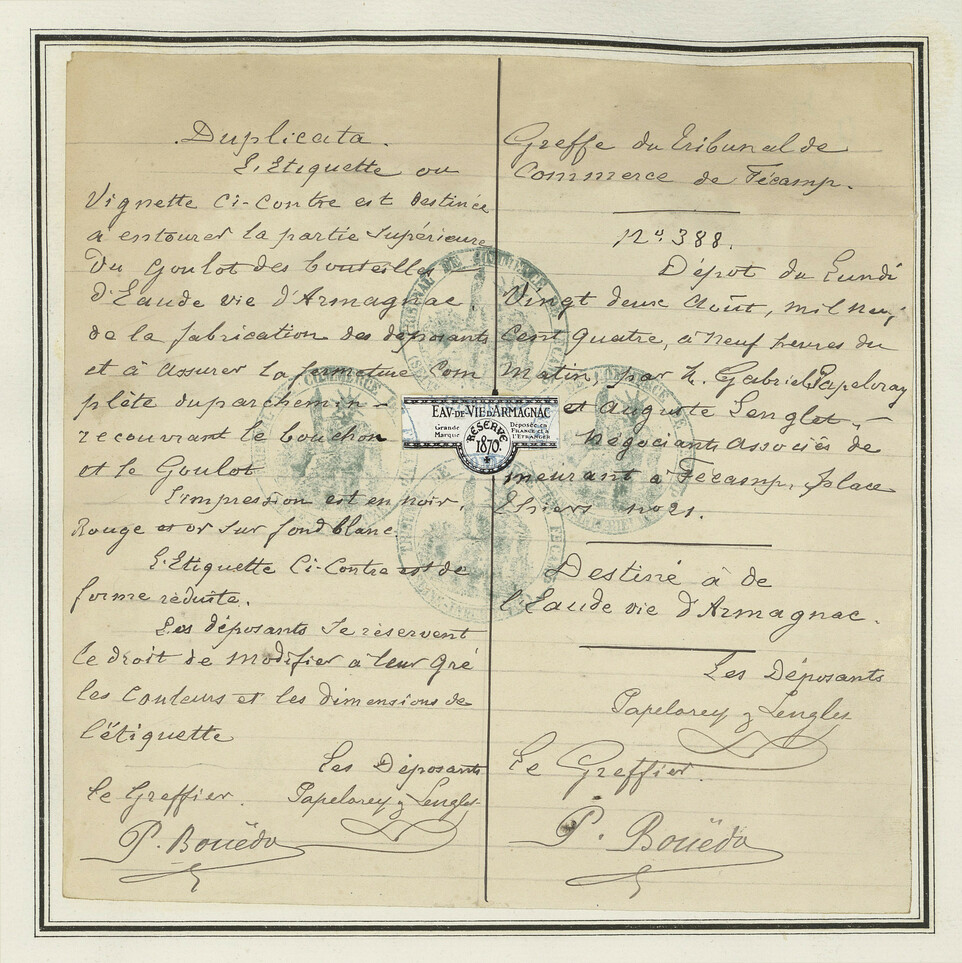 Duplicata.
L'Etiquette ou
Vignette Ci-Contre est destinée
a entourer la partie Supérieure
du Goulot des bouteilles
d'Eau de vie d'Armagnac,
de la fabrication des déposants
et à assurer la fermeture Com
plète du parchemin -
recouvrant le bouchon
et le Goulot
L'impression est en noir,
Rouge et or sur fond blanc.
L'Etiquette Ci-Contre est de
forme réduite.
Les déposants se réservent
le droit de modifier a leur gré
les Couleurs et les dimensions de
l'étiquette
Les Déposants
Le Greffier. Papelorey & Lenglet
P. Bouëdo
EAV-DE-VIE D'ARMAGNAC
Grande Marque
RÉSERVE 1870.
Déposée en FRANCE et à L'ÉTRANGER
Greffe du Tribunal de
Commerce de Fécamp.
No. 388.
Dépot du Lundi
Vingt deux Août, mil neuf
Cent quatre, à Neuf heures du
Matin, par M. Gabriel Papelorey
et Auguste Lenglet,
Négociants Associés de
meurant à Fécamp, place
Thiers no 21.
Destiné à de
l'Eau de vie d'Armagnac.
Les Déposants
Papelorey & Lenglet
Le Greffier.
P. Bouëdo